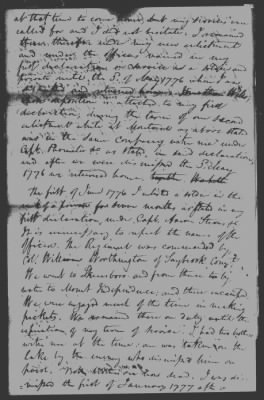 at that time to come home but my services were
called for and I did not hesitate. I remained
there therefore under my new enlistment
and under the officers named in my
first declaration as a
private until the 5. of May 1776 when I was
and returned home.
whose deposition is attached to my first
declaration, during the term of our second
enlistment while at Montreal as above stated
was in the same company with me under
Capt. as stated in said declaration
and after we were dismissed the 5. May
1776 we returned home
The first of June 1776 I enlisted a soldier in the
of a private for seven months as stated in my
first declaration, under Capt. Aaron
It is unnecessary to repeat the names of the
officers. The Regiment was commanded by
Col. William Worthington of Saybrook Conn.
We went to Skensboro and from there to by
water to Mount Independence, and there remained
We were engaged much of the time in making
pickets. We remained there on duty until the
expiration of my term of service. I had two brothers
with me at the time: one was taken on the
lake by the enemy who dismissed him on
parole, was dead. I was dis-
missed the first of January 1777 after a